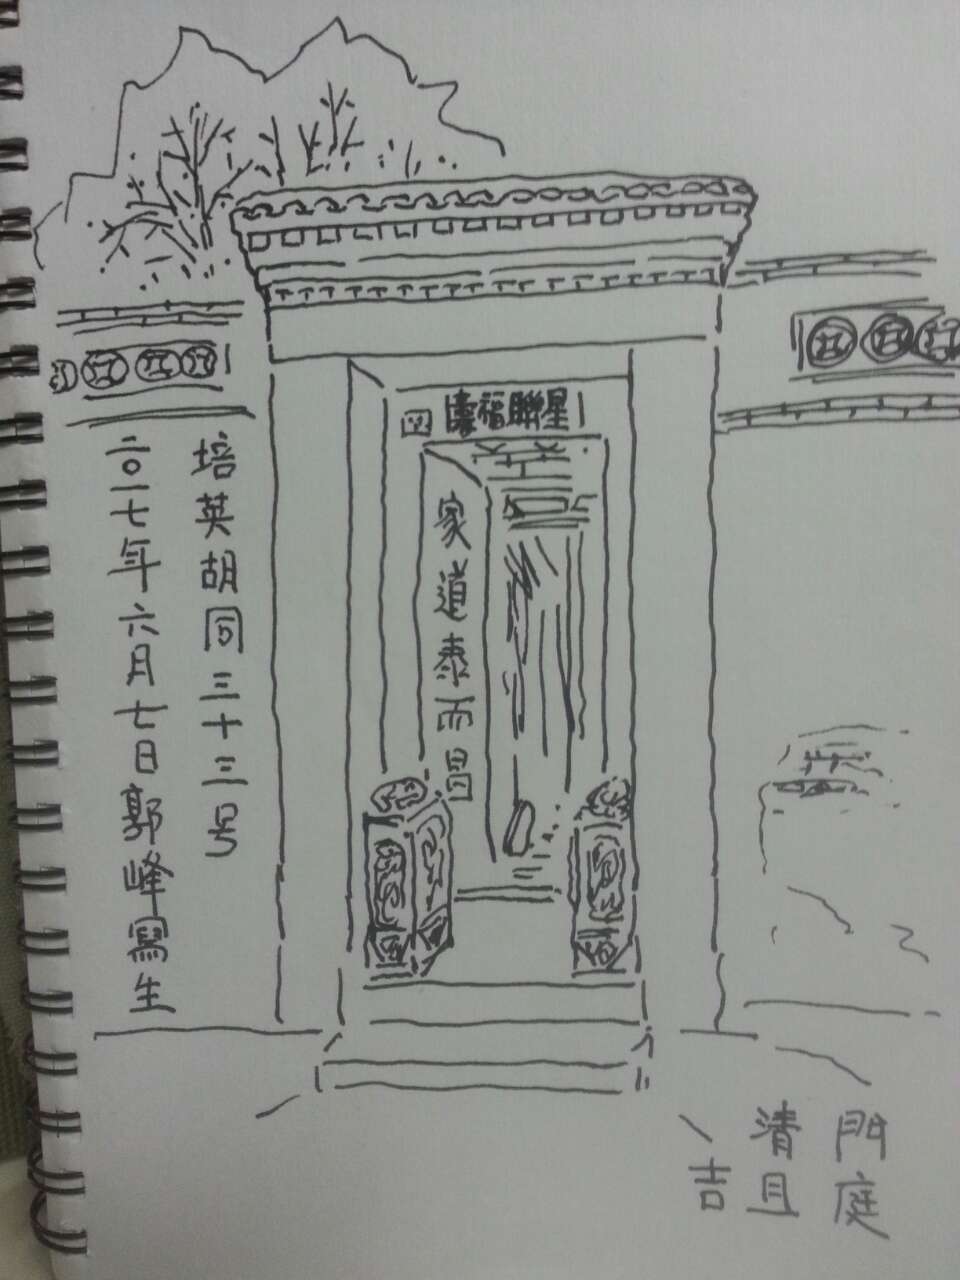 星聯福壽
家道泰而昌
培英胡同三十三号
二〇一七年六月七日郭峰寫生
門庭
清且
吉